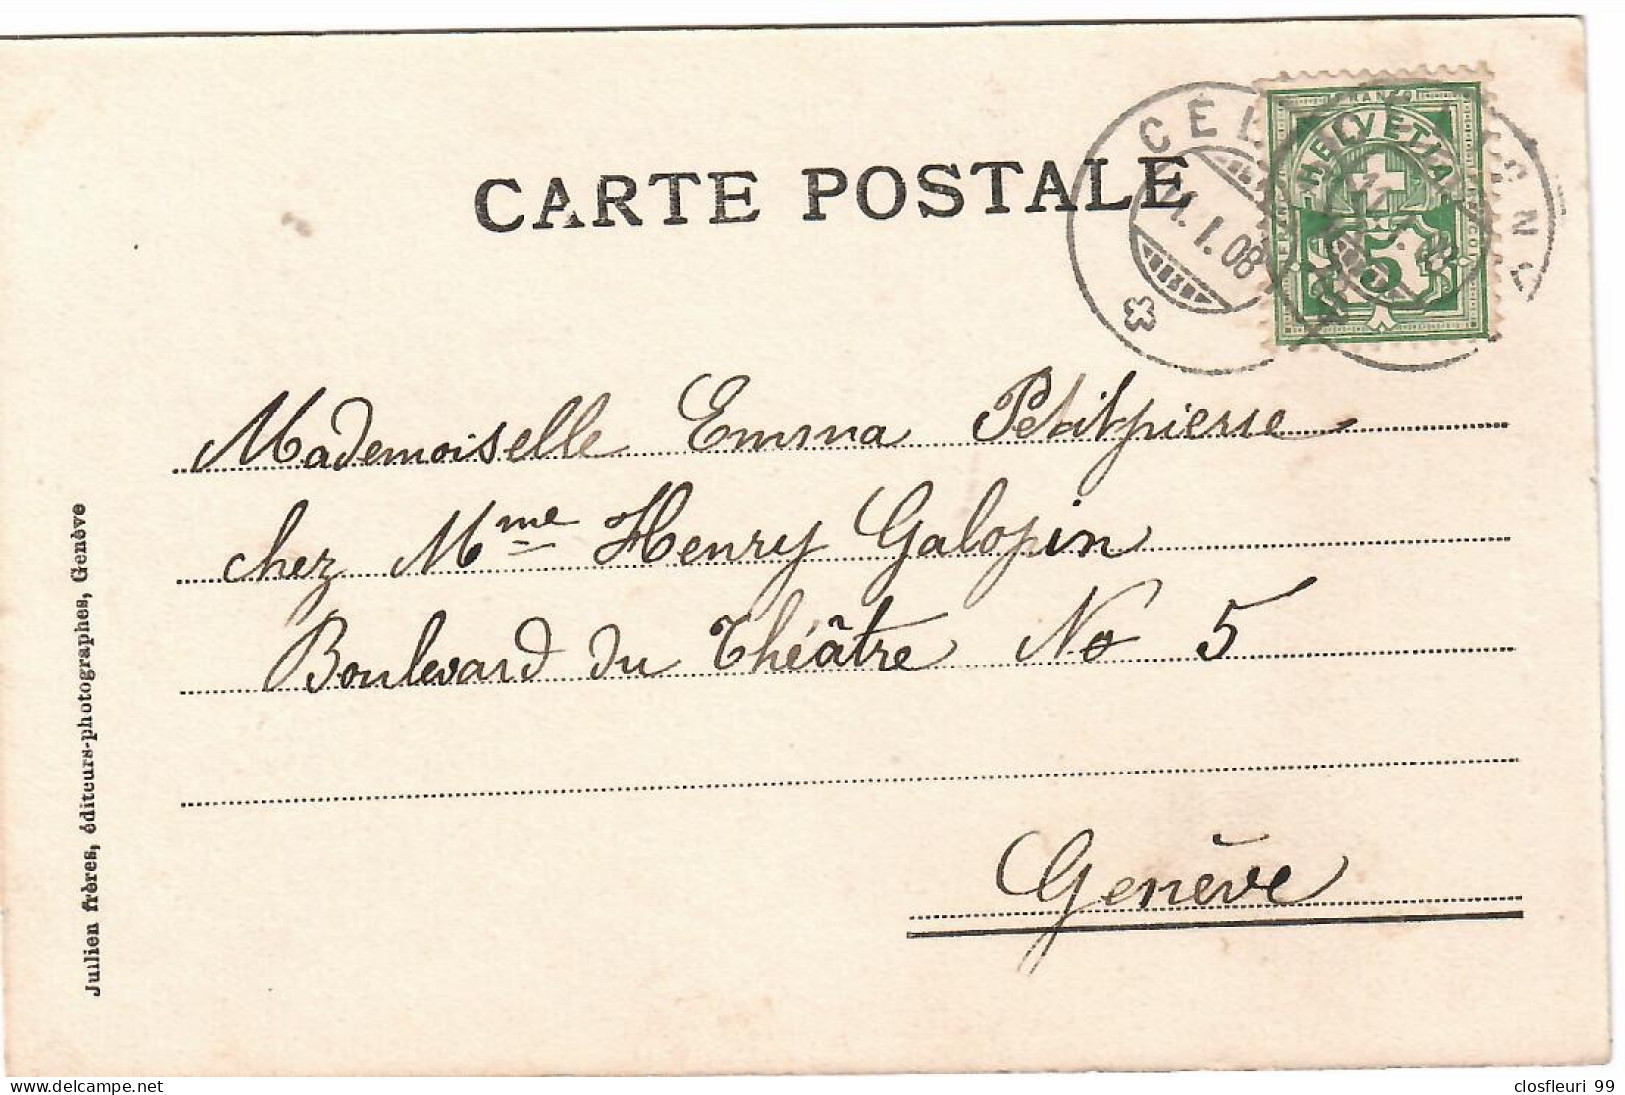 CARTE POSTALE
FRANCO
HELVETIA
5
1. I. 08
Mademoiselle Emma Petitpierre
chez Mme Henry Galopin
Boulevard du Théâtre No 5
Genève
Julien frères, éditeurs-photographes, Genève
closfleuri 99